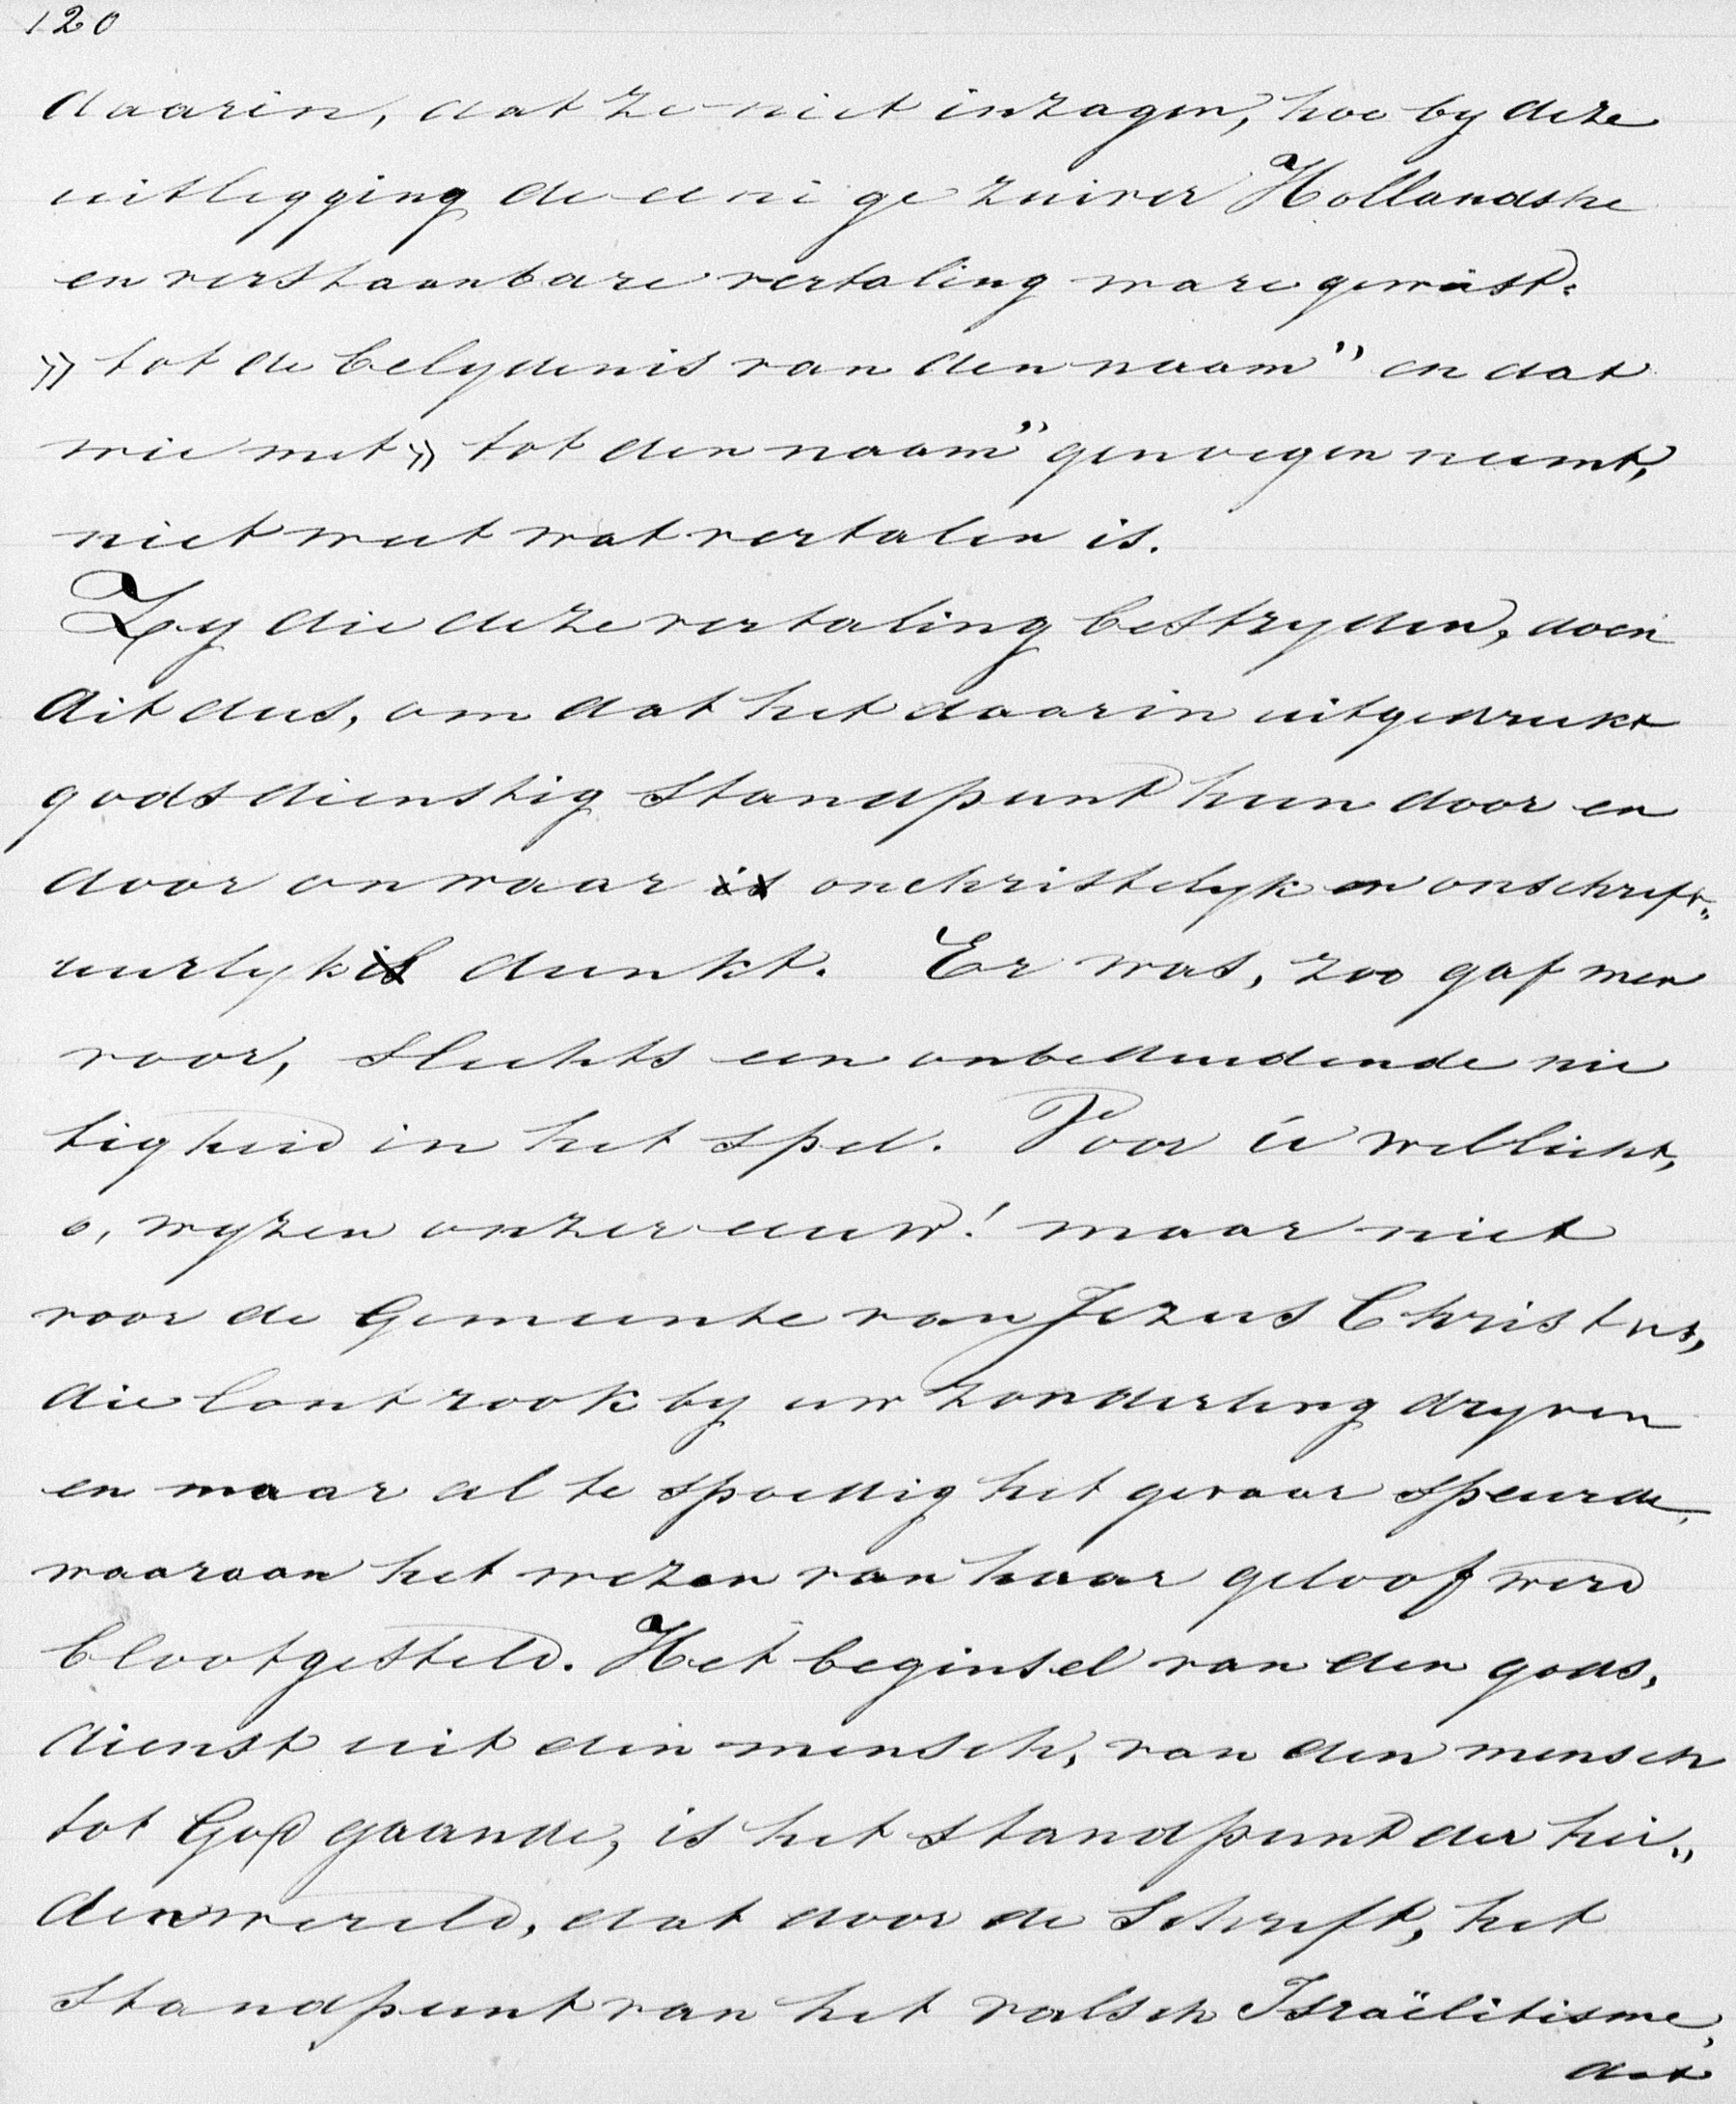 120
daarin, dat ze niet inzagen, hoe by deze
uitlegging de eenige zuiver Hollandshe
en verstaanbare vertaling ware gewest:
» tot de belydenis van den naam" en dat
wie met » tot den naam" genoegen neemt,
niet weet wat vertalen is.
Zy die deze vertaling bestryden, doen
dit dus, om dat het daarin uitgedrukt
godsdienstig standpunt hun door en
door onwaar is onchristelyk en onschrift„
uurlyk is dunkt. Er was, zoo gaf men
voor, slechts een onbeduidende nie
tigheid in het spel. Voor ú wellicht,
o, wyzen onzer eeuw! maar niet
voor de Gemeente van Jezus Christus,
die lont rook by uw zonderling dryven
en maar al te spoedig het gevaar speurde,
waaraan het wezen van haar geloof werd
blootgesteld. Het beginsel van den gods„
dienst uit den mensch, van den mensch
tot God gaande, is het standpunt der hei„
denwereld, dat door de Schrift, het
standpunt van het valsch Israëlitisme,
dat